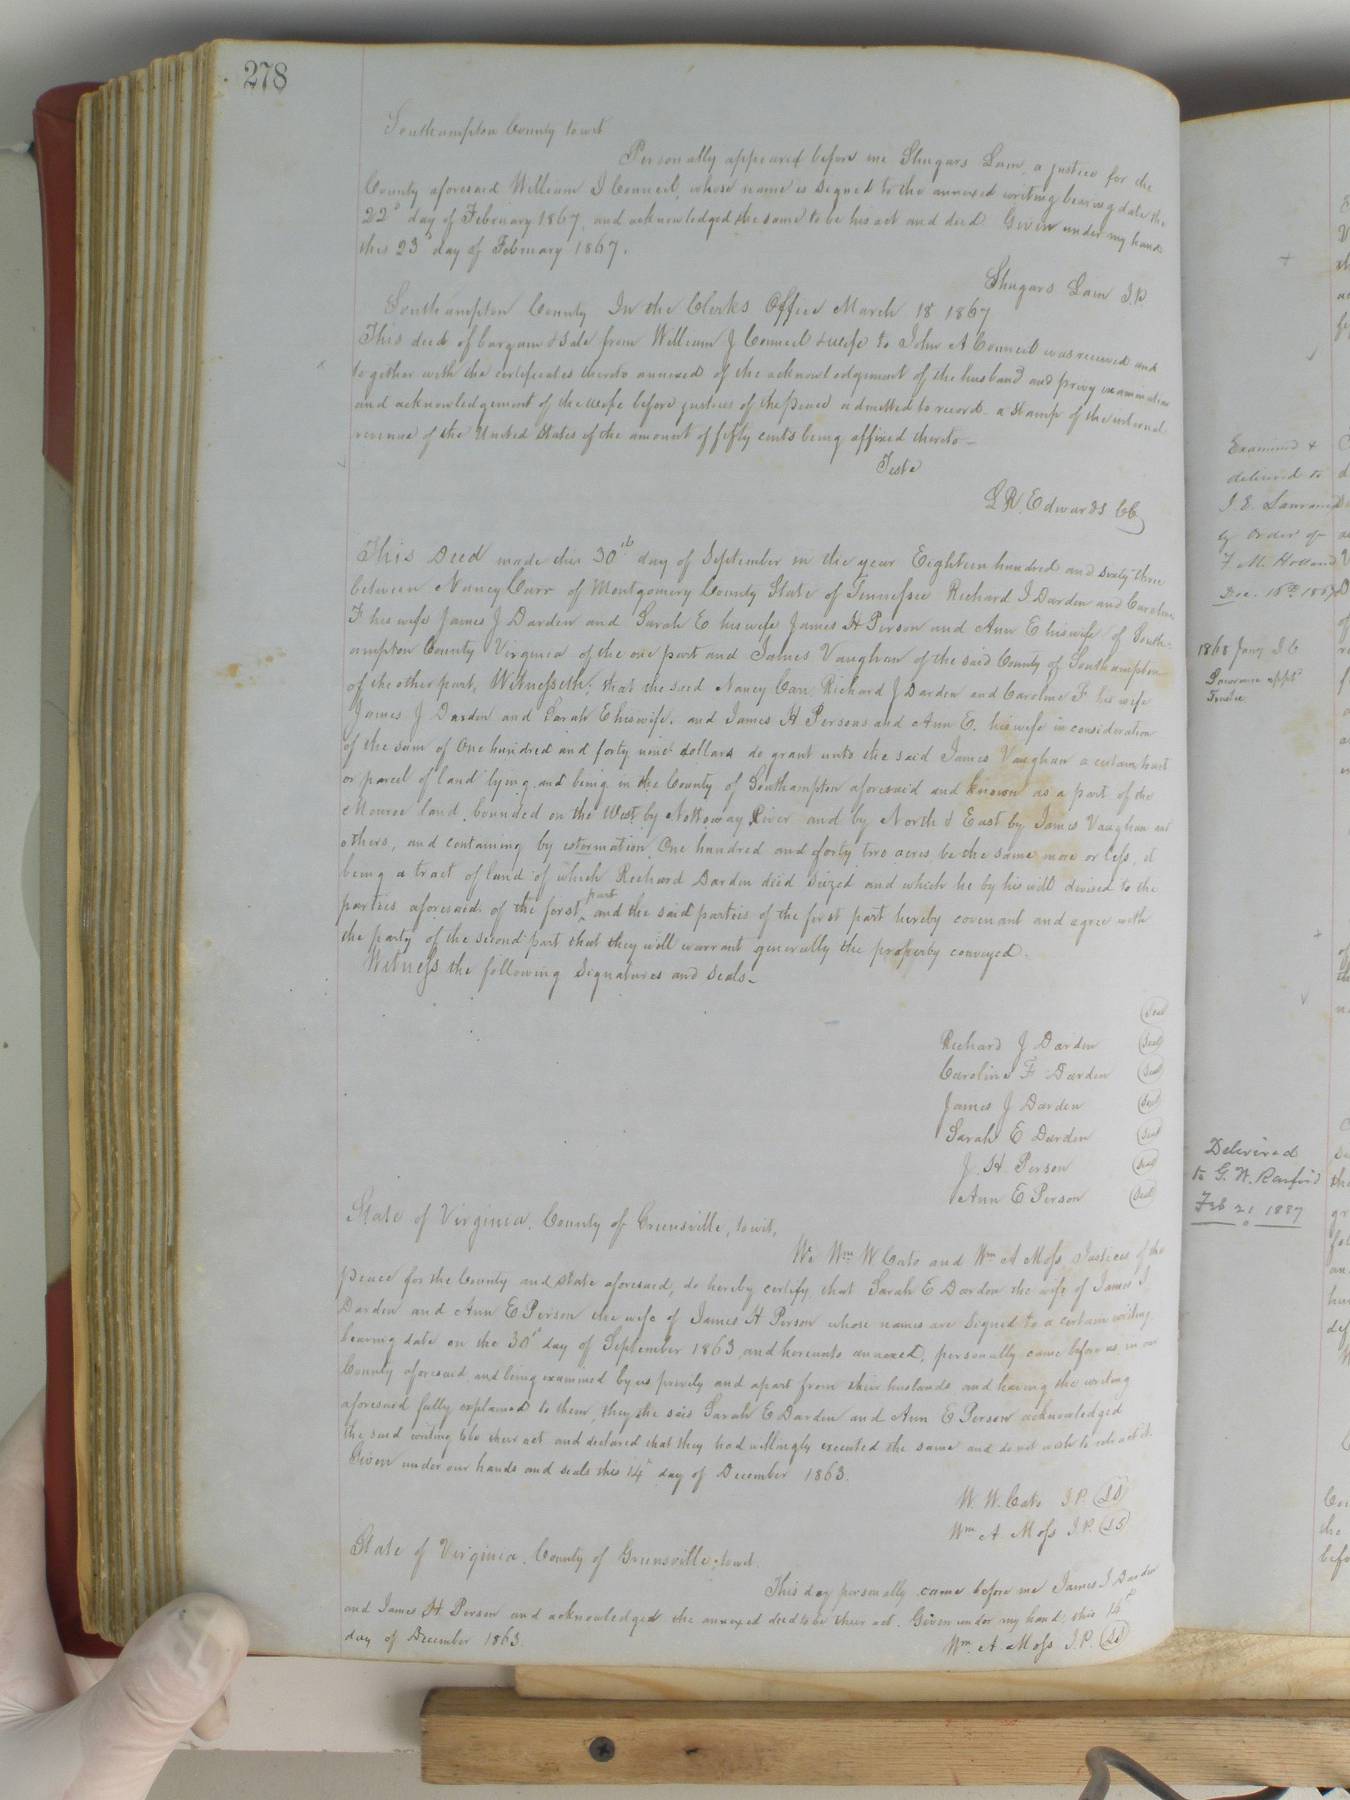 278
Southampton County to wit
Personally appeared before me Shugars Lain, a justice for the
County aforesaid William J Council, whose name is signed to the annexed writing bearing date the
22d day of February 1867, and acknowledged the same to be his act and deed Given under my hand
this 23d day of February 1867.
Shugars Lain J.P.
Southampton County In the Clerks Office March 18 1867
This deed of bargain & Sale from William J Council & wife to John A Council was received and
together with the certificates thereto annexed of the acknowledgement of the husband and privy examination
and acknowledgement of the wife before justices of the peace admitted to record a stamp of the internal
revenue of the United States of the amount of fifty cents being affixed thereto—
Teste
L R. Edwards CC
This Deed made this 30th day of September in the year Eighteen hundred and sixty three
between Nancy Carr of Montgomery County State of Tennessee Richard J Darden and Caroline
F his wife James J Darden and Sarah E his wife James H Person and Ann E his wife of South-
ampton County Virginia of the one part and James Vaughan of the said County of Southampton
of the other part, Witnesseth: that the said Nancy Carr, Richard J Darden and Caroline F his wife
James J Darden and Sarah E his wife, and James H Persons and Ann E. his wife in consideration
of the sum of One hundred and forty nine dollars do grant unto the said James Vaughan a certain tract
or parcel of land lying and being in the County of Southampton aforesaid and known as a part of the
Monroe land, bounded on the West by Nottoway River and by North & East by James Vaughan and
others, and containing by estormation One hundred and forty two acres be the same more or less, it
being a tract of land of which Richard Darden died seized and which he by his will devised to the
parties aforesaid of the first part and the said parties of the first part hereby covenant and agree with
the party of the second part that they will warrant generally the property conveyed.
Witness the following Signatures and seals—
Seal
Richard J Darden Seal
Caroline F Darden Seal
James J Darden Seal
Sarah E Darden Seal
J. H Person Seal
Ann E Person Seal
State of Virginia, County of Greensville, to wit,
We Wm W Cato and Wm A Moss Justices of the
peace for the County and State aforesaid, do hereby certify that Sarah E Darden the wife of James J
Darden and Ann E Person the wife of James H Person whose names are Signed to a certain writing
bearing date on the 30th day of September 1863 and hereunto annexed, personally came before us in our
County aforesaid, and being examined by us privily and apart from their husbands and having the writing
aforesaid fully explained to them, they the said Sarah E Darden and Ann E Person acknowledged
the said writing to be their act and declared that they had willingly executed the same and do not wish to retract it.
Given under our hands and seals this 14th day of December 1863.
W. W. Cato J.P. LS
Wm A Moss J.P. LS
State of Virginia, County of Greensville, to wit.
This day personally came before me James J Darden
and James H Person and acknowledged the annexed deed to be their act. Given under my hand, this 14th
day of December 1863.
Wm A Moss J.P. LS
Examined &
delivered to
J. E. Lawrence
by order of
F. M. Holland
Dec. 16th 1867
1868 Jany J E
Lawrence appt
Trustee
Delivered
to G. W. Ranford
Feb 21 1887